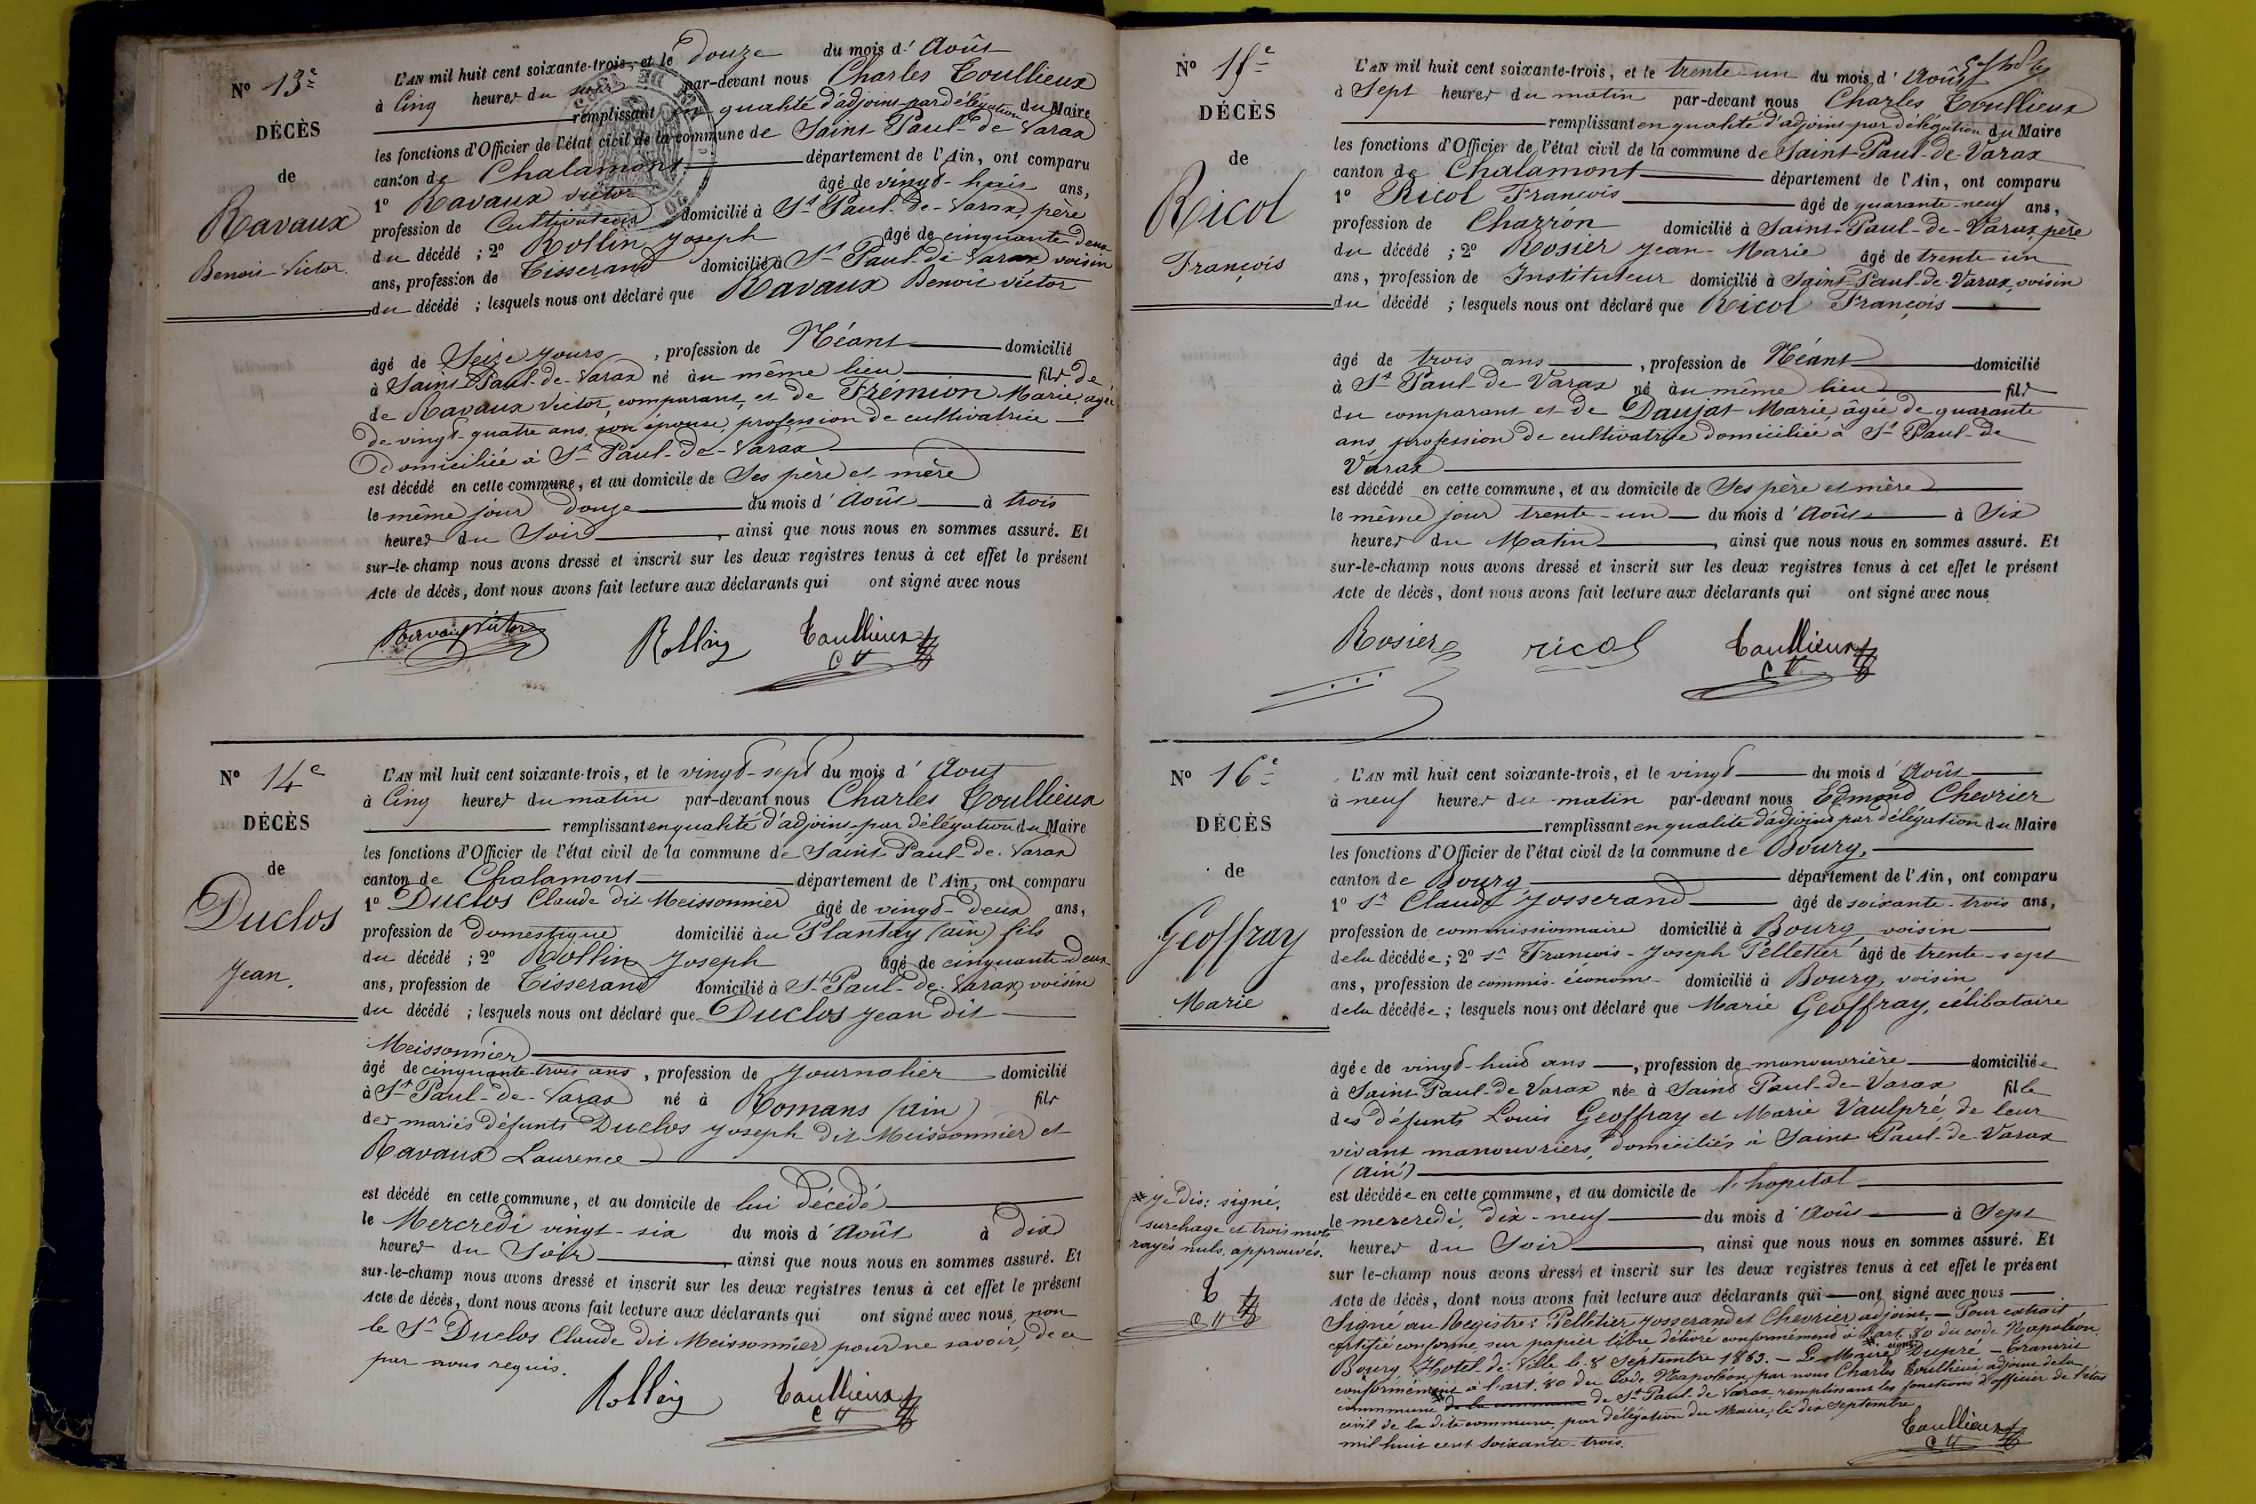 Nº 13e
DÉCÈS
de
Ravaux
Benoit Victor.
L'AN mil huit cent soixante-trois, et le douze du mois d'Août
à Cinq heures du soir par-devant nous Charles Toullieux
remplissant en qualité d'adjoint par délégation du Maire
les fonctions d'Officier de l'état civil de la commune de Saint-Paul-de-Varax
canton de Chalamont département de l'Ain, ont comparu
1º Ravaux Victor âgé de vingt-huit ans,
profession de Cultivateur domicilié à St Paul-de-Varax, père
du décédé ; 2º Rollin Joseph âgé de cinquante deux
ans, profession de Tisserand domicilié à St Paul-de-Varax voisin
du décédé ; lesquels nous ont déclaré que Ravaux Benoit victor
âgé de Seize jours, profession de Néant domicilié
à Saint Paul-de-Varax né au même lieu fils de
de Ravaux Victor, comparant, et de Frémion Marie, agée
de vingt-quatre ans, son épouse, profession de cultivatrice
Domiciliée à St Paul-de-Varax
est décédé en cette commune, et au domicile de Ses père et mère
le même jour douze du mois d'Août à trois
heures du Soir, ainsi que nous nous en sommes assuré. Et
sur-le-champ nous avons dressé et inscrit sur les deux registres tenus à cet effet le présent
Acte de décès, dont nous avons fait lecture aux déclarants qui ont signé avec nous
Ravaux Victor Rollin Toullieux
Nº 14e
DÉCÈS
de
Duclos
Jean.
L'AN mil huit cent soixante-trois, et le vingt-sept du mois d'Aout
à Cinq heures du matin par-devant nous Charles Toullieux
remplissant en qualité d'adjoint par délégation du Maire
les fonctions d'Officier de l'état civil de la commune de Saint Paul-de-Varax
canton de Chalamont département de l'Ain, ont comparu
1º Duclos Claude dit Meissonnier âgé de vingt-deux ans,
profession de domestique domicilié au Plantay (ain) fils
du décédé ; 2º Rollin Joseph âgé de cinquante-deux
ans, profession de Tisserand domicilié à St Paul-de-Varax, voisin
du décédé ; lesquels nous ont déclaré que Duclos Jean dit
Meissonnier
âgé de cinquante-trois ans, profession de Journalier domicilié
à St Paul-de-Varax né à Romans (ain) fils
des mariés défunts Duclos Joseph dit Meissonnier et
Ravaux Laurence
est décédé en cette commune, et au domicile de lui décédé
le Mercredi vingt-six du mois d'Août à dix
heures du Soir, ainsi que nous nous en sommes assuré. Et
sur-le-champ nous avons dressé et inscrit sur les deux registres tenus à cet effet le présent
Acte de décès, dont nous avons fait lecture aux déclarants qui ont signé avec nous, non
le Sr Duclos Claude dit Meissonnier pour ne savoir, de ce
par nous requis.
Rollin Toullieux
Nº 15e
DÉCÈS
de
Ricol
François
L'AN mil huit cent soixante-trois, et le trente-un du mois d'Août
à Sept heures du matin par-devant nous Charles Toullieux
remplissant en qualité d'adjoint par délégation du Maire
les fonctions d'Officier de l'état civil de la commune de Saint-Paul-de-Varax
canton de Chalamont département de l'Ain, ont comparu
1º Ricol François âgé de quarante-neuf ans,
profession de Charron domicilié à Saint-Paul-de-Varax, père
du décédé ; 2º Rosier Jean-Marie âgé de trente-un
ans, profession de Instituteur domicilié à Saint-Paul-de-Varax, voisin
du décédé ; lesquels nous ont déclaré que Ricol François
âgé de trois ans, profession de Néant domicilié
à St Paul-de-Varax né au même lieu fils
du comparant et de Daujat Marie, âgée de quarante
ans, profession de cultivatrice domiciliée à St Paul-de
Varax
est décédé en cette commune, et au domicile de Ses père et mère
le même jour trente-un du mois d'Août à Six
heures du Matin, ainsi que nous nous en sommes assuré. Et
sur-le-champ nous avons dressé et inscrit sur les deux registres tenus à cet effet le présent
Acte de décès, dont nous avons fait lecture aux déclarants qui ont signé avec nous
Rosier ricol Toullieux
Nº 16e
DÉCÈS
de
Geoffray
Marie
L'AN mil huit cent soixante-trois, et le vingt du mois d'Août
à neuf heures du matin par-devant nous Edmond Chevrier
remplissant en qualité d'adjoint par délégation du Maire
les fonctions d'Officier de l'état civil de la commune de Bourg,
canton de Bourg, département de l'Ain, ont comparu
1º Sr Claude Josserand âgé de soixante-trois ans,
profession de commissionnaire domicilié à Bourg, voisin
de la décédée ; 2º Sr François-Joseph Pelletier âgé de trente-sept
ans, profession de commis-économe domicilié à Bourg, voisin
de la décédée ; lesquels nous ont déclaré que Marie Geoffray, célibataire
âgée de vingt-huit ans, profession de manouvrière domiciliée
à Saint Paul-de Varax née à Saint Paul-de-Varax fille
des défunts Louis Geoffray et Marie Vaulpré, de leur
vivant manouvriers, domiciliés à Saint Paul-de-Varax
(Ain)
est décédée en cette commune, et au domicile de l'hopital
le mercredi, dix-neuf du mois d'Août à Sept
heures du Soir, ainsi que nous nous en sommes assuré. Et
sur le-champ nous avons dressé et inscrit sur les deux registres tenus à cet effet le présent
Acte de décès, dont nous avons fait lecture aux déclarants qui ont signé avec nous
Signé au Registre : Pelletier Josserand et Chevrier adjoint. — Pour extrait
certifié conforme, sur papier libre délivré conformément à l'art. 80 du code Napoléon
Bourg, Hotel de Ville le 8 Septembre 1863. — Le Maire signé Dupré — Transcrit
conformément à l'art. 80 du Code Napoléon, par nous Charles Toullieux adjoint de la
commune de la commune de St Paul-de Varax, remplissant les fonctions d'officier de l'état
civil de la dite commune, par délégation du Maire, le dix Septembre
mil huit cent soixante-trois.
Toullieux
Je dis : signé,
surchage et trois mots
rayés nuls approuvés.